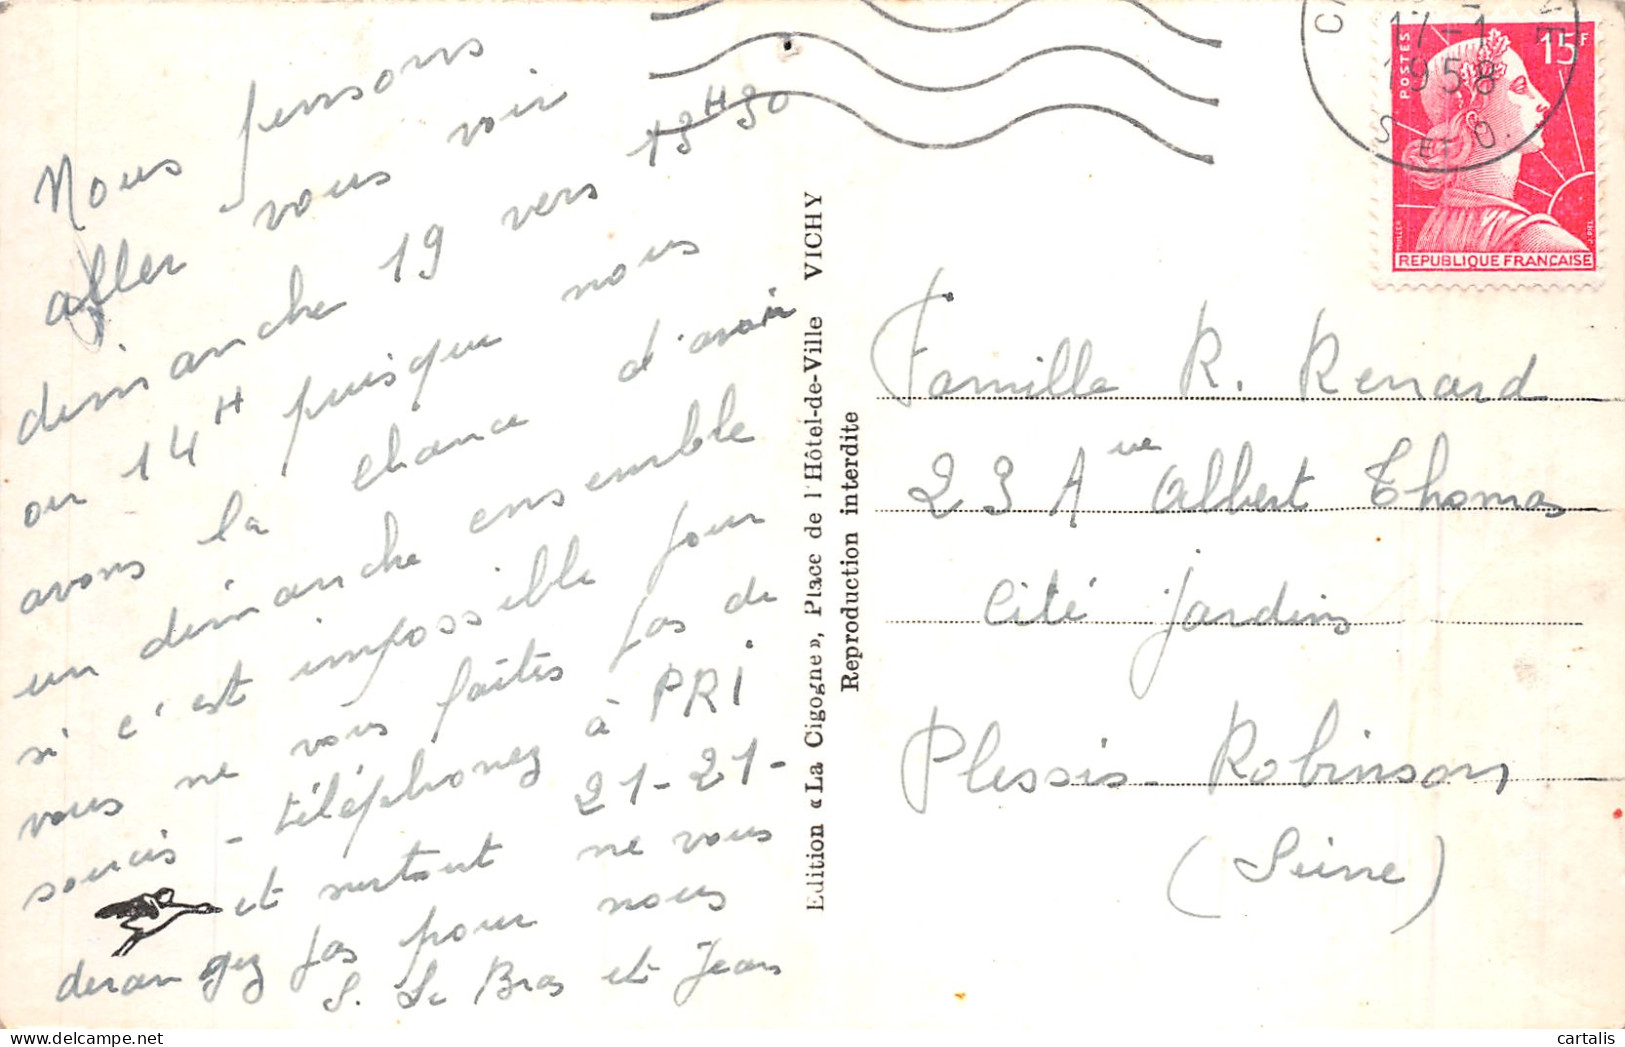 Nous pensons
aller vous voir
dimanche 19 vers 13H30
ou 14H puisque nous
avons la chance d'avoir
un dimanche ensemble
si c'est impossible pour
vous ne vous faites pas de
soucis - téléphonez à PRI
21-21-
et surtout ne vous
derangez pas pour nous
S. Le Bras et Jean
Edition «La Cigogne», Place de l Hôtel-de-Ville VICHY
Reproduction interdite
17-1
1958
S. ET O.
POSTES
15F
MULLER
J. PIEL
REPUBLIQUE FRANÇAISE
Famille R. Renard
23 Aue Albert Thomas
Cité Jardins
Plessis-Robinson
(Seine)
cartalis